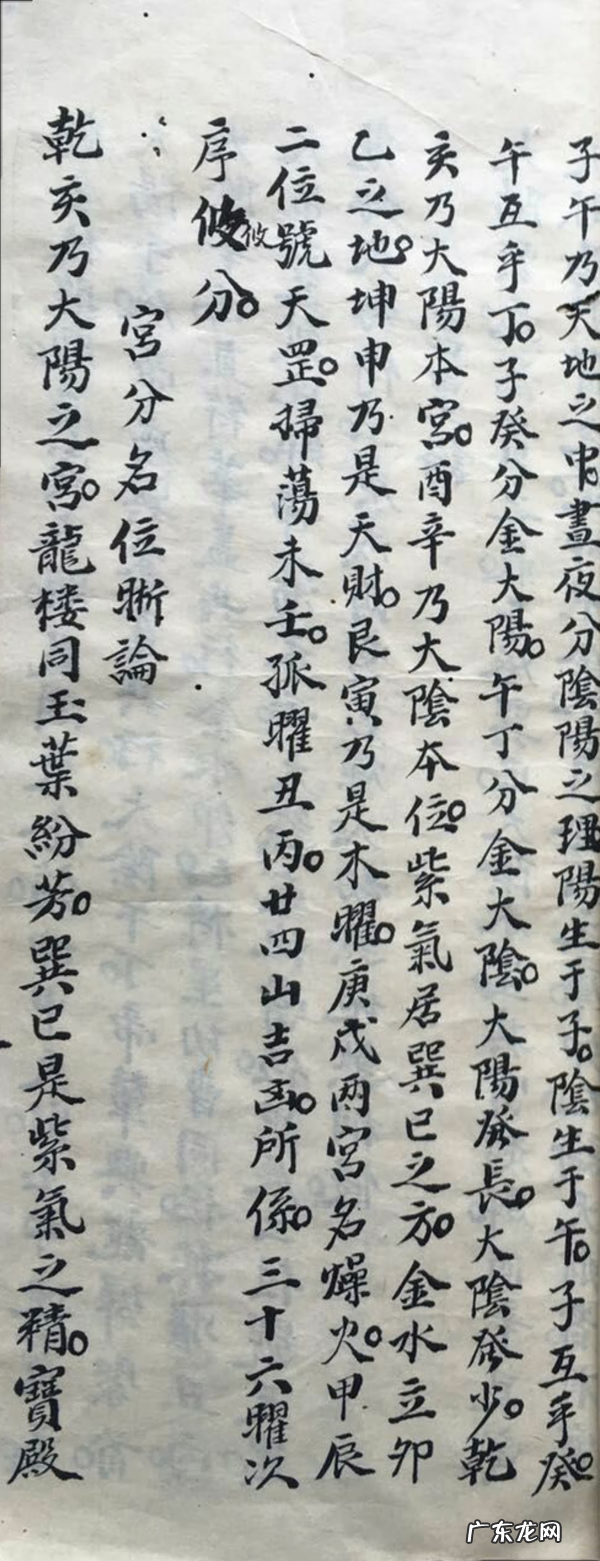 子午乃天地之中。晝夜分陰陽之理陽生于子。陰生于午。子互乎癸。
午互乎丁。子癸分金大陽。午丁分金大陰。大陽癸長。大陰癸少。乾
亥乃大陽本宮。酉辛乃大陰本位。紫氣居巽巳之方。金水立卯
乙之地。坤申乃是天財。艮寅乃是木曜。庚戌兩宮名燥火。甲辰
二位號天罡。掃蕩未壬。孤曜丑丙。廿四山吉凶所係。三十六曜次
序攸攸分。
宮分名位晰論
乾亥乃大陽之宮。龍楼同玉葉紛芳。巽巳是紫氣之精。寶殿
广东龙网